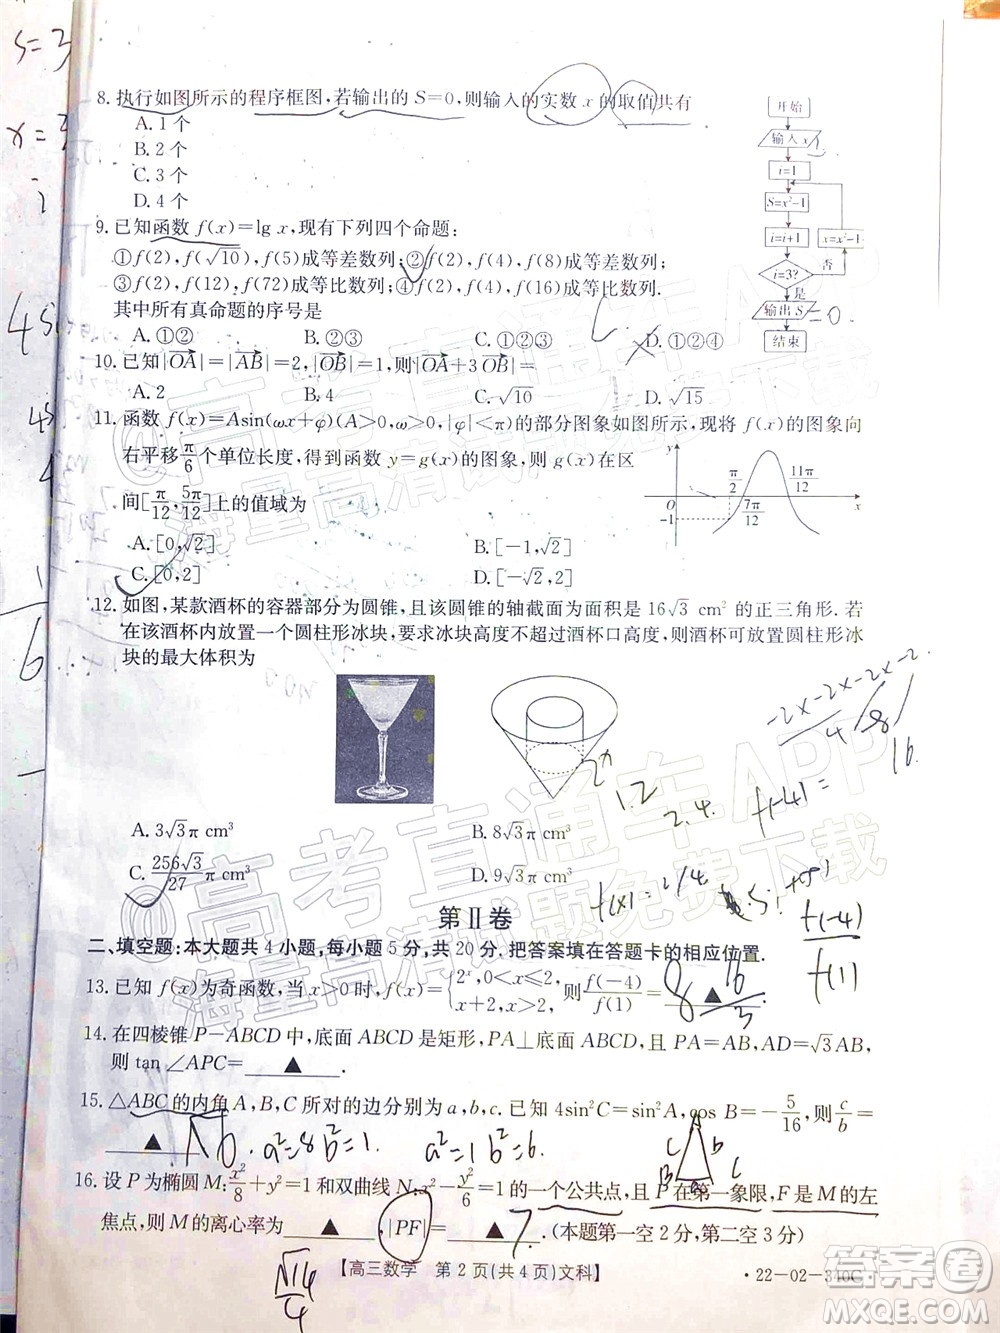 S=3
8.执行如图所示的程序框图,若输出的S=0,则输入的实数x的取值共有
A.1个
B.2个
C.3个
D.4个
开始
输入x
i=1
S=x²-1
i=i+1
x=x²-1
i=3?
否
是
输出S
=0
结束
9.已知函数f(x)=lg x,现有下列四个命题:
①f(2),f(√10),f(5)成等差数列;②f(2),f(4),f(8)成等差数列;
③f(2),f(12),f(72)成等比数列;④f(2),f(4),f(16)成等比数列.
其中所有真命题的序号是
A.①② B.③④ C.①②③ D.①②④
10.已知|OA|=|AB|=2,|OB|=1,则|OA+3OB|=
A.2 B.4 C.√10 D.√15
11.函数f(x)=Asin(ωx+φ)(A>0,ω>0,|φ|<π)的部分图象如图所示,现将f(x)的图象向
右平移π/6个单位长度,得到函数y=g(x)的图象,则g(x)在区
间[π/12,5π/12]上的值域为
A.[0,√2] B.[-1,√2]
C.[0,2] D.[-√2,2]
y
π/2
11π/12
O
7π/12
x
-1
12.如图,某款酒杯的容器部分为圆锥,且该圆锥的轴截面为面积是16√3 cm²的正三角形.若
在该酒杯内放置一个圆柱形冰块,要求冰块高度不超过酒杯口高度,则酒杯可放置圆柱形冰
块的最大体积为
A.3√3π cm³ B.8√3π cm³
C.256√3/27 π cm³ D.9√3π cm³
1.2
2.4.
16.
f(-4)=
f(-4)
f(1)
第Ⅱ卷
二、填空题:本大题共4小题,每小题5分,共20分.把答案填在答题卡的相应位置.
13.已知f(x)为奇函数,当x>0时,f(x)={2ˣ,0<x≤2, x+2,x>2,则f(-4)/f(1)=▲.
16/3
14.在四棱锥P-ABCD中,底面ABCD是矩形,PA⊥底面ABCD,且PA=AB,AD=√3AB,
则tan∠APC=▲.
15.△ABC的内角A,B,C所对的边分别为a,b,c.已知4sin²C=sin²A,cos B=-5/16,则c/b=
▲.
a²=8 b²=1. a²=1 b²=6.
16.设P为椭圆M:x²/8+y²=1和双曲线N:x²-y²/6=1的一个公共点,且P在第一象限,F是M的左
焦点,则M的离心率为▲,|PF|=▲.(本题第一空2分,第二空3分)
√14/4
【高三数学 第2页(共4页)文科】
·22-02-340C·
@高考直通车APP
海量高清试题免费下载
@高考直通车APP
海量高清试题免费下载
答案圈
MXQE.COM